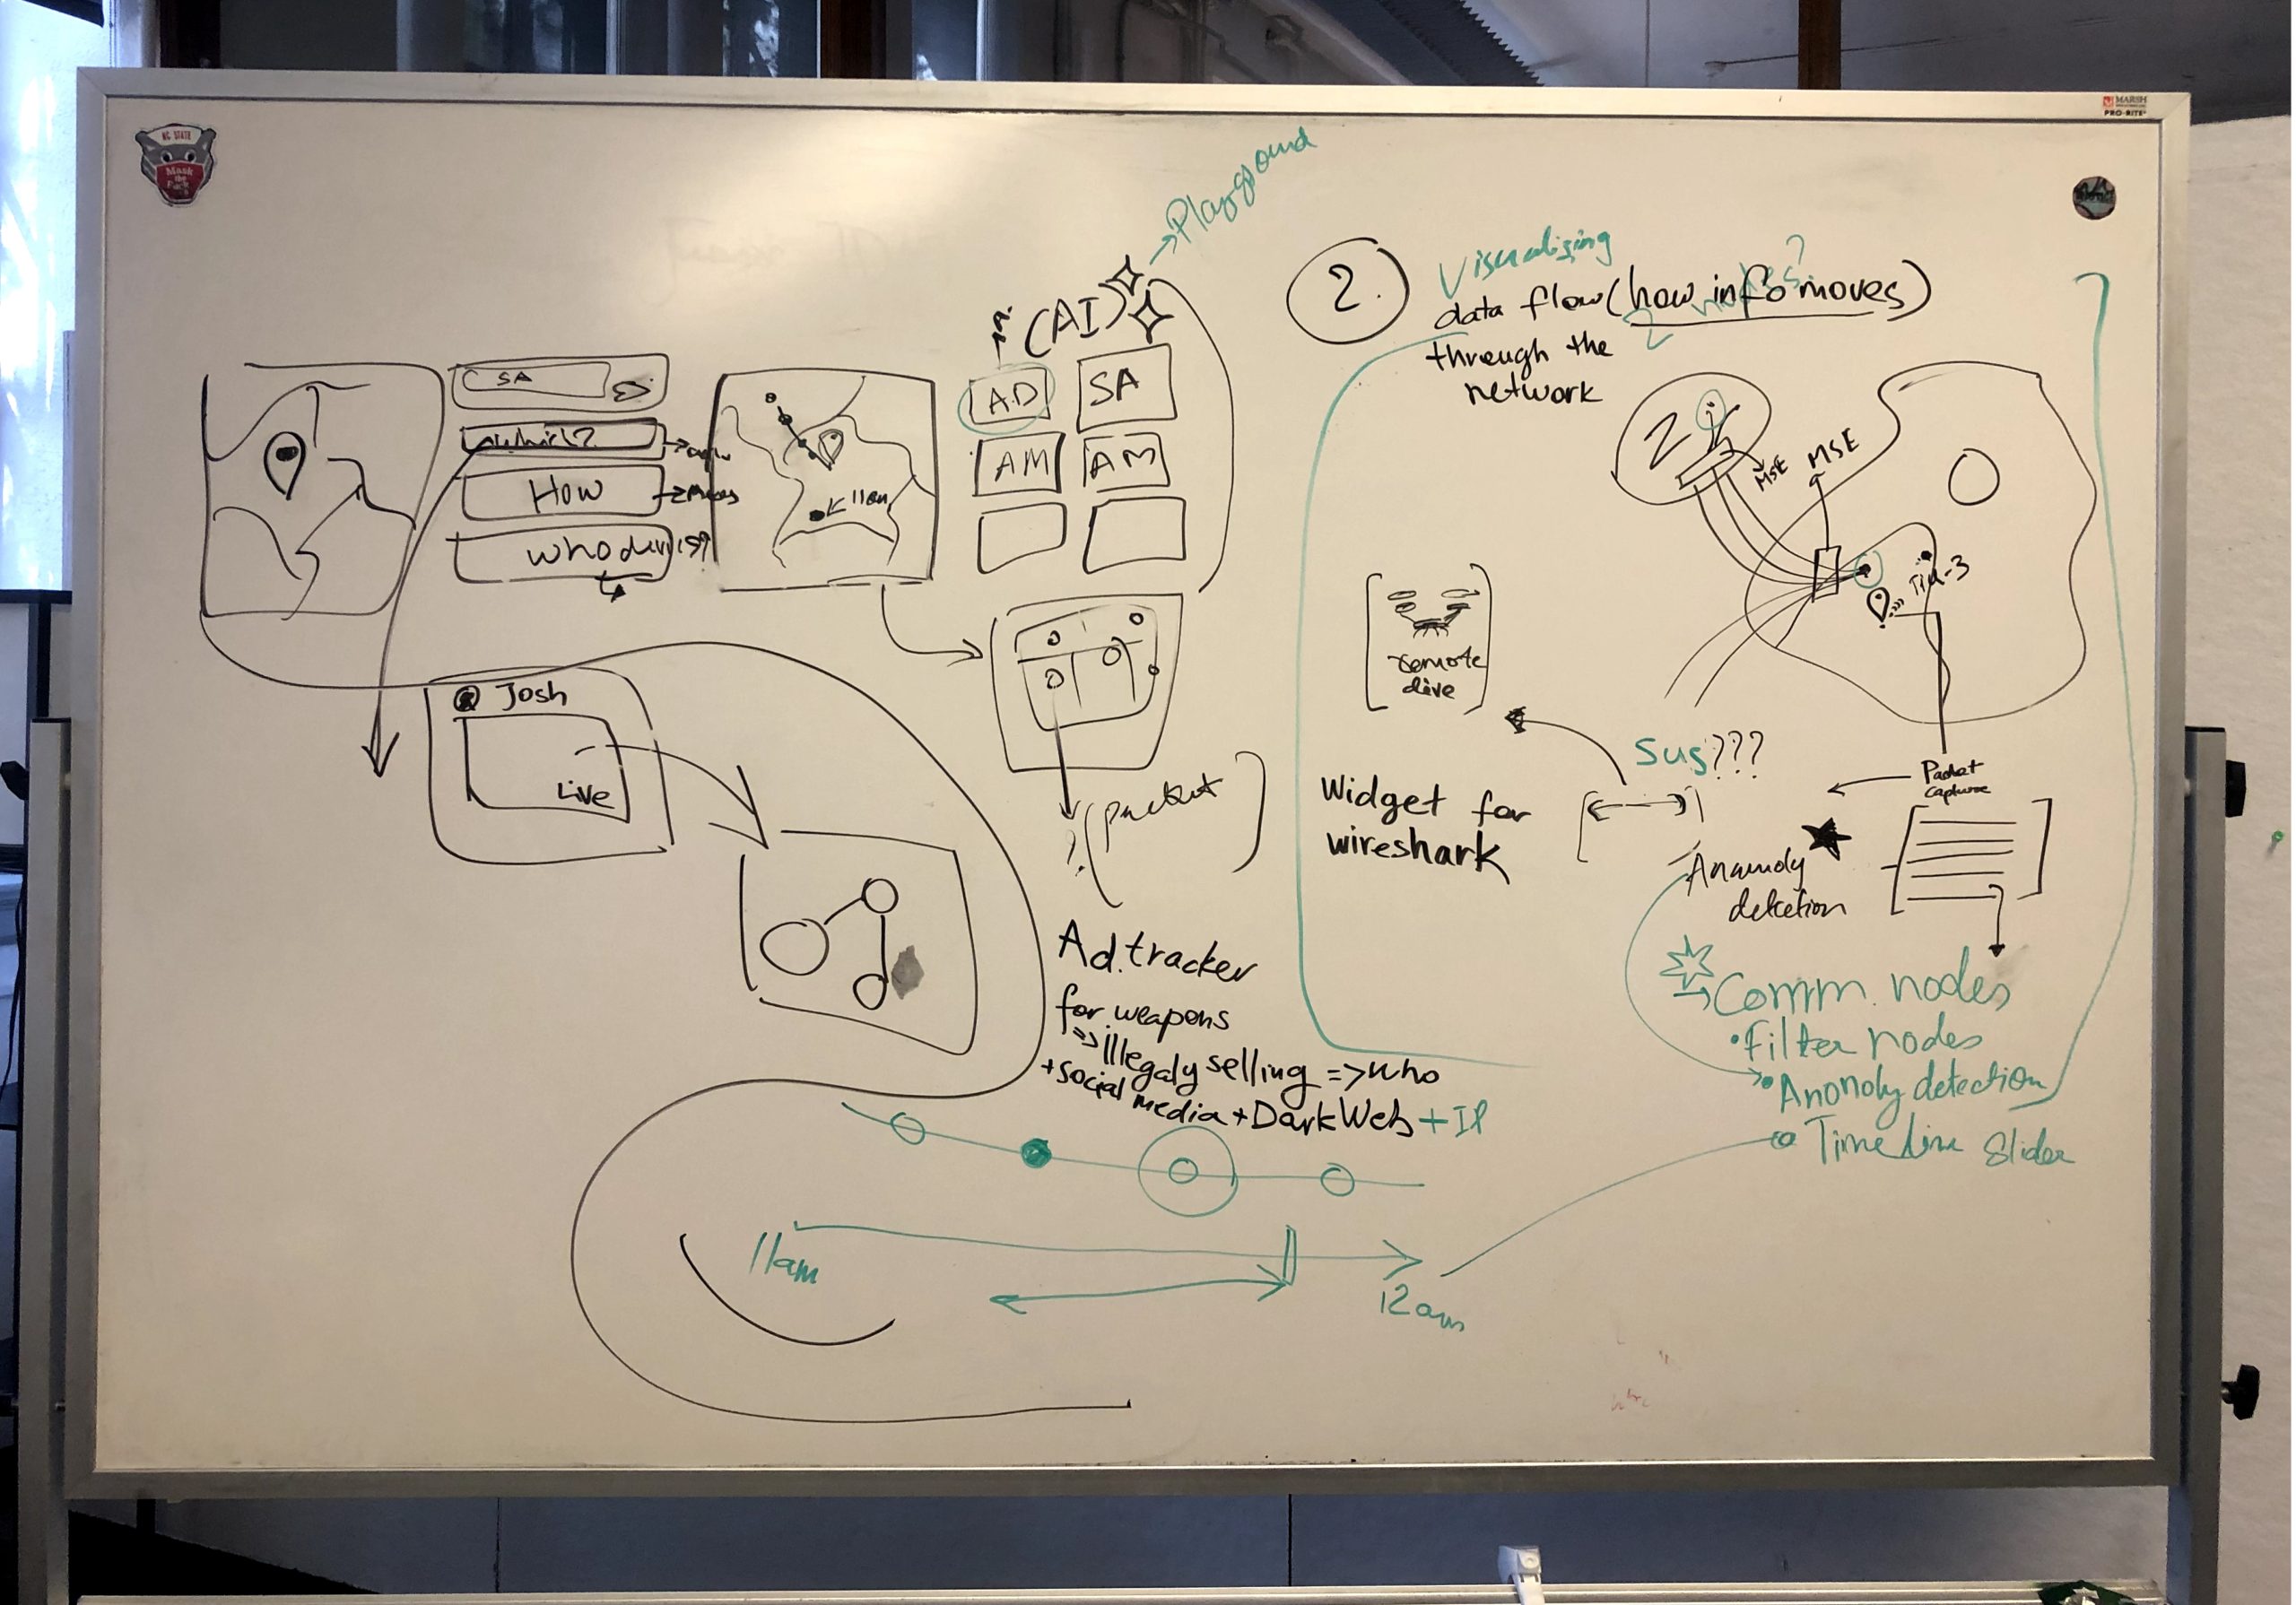 NC STATE
Mask
the
Pack
MARSH
PRO-RITE
→Playground
(AI)
AD
SA
AM
AM
SA
How
11am
@ Josh
Live
(packet
)
Ad.tracker
for weapons
=> illegaly selling => who
+social media + Dark Web + IP
11am
12am
2.
Visualizing
data flow (how info moves)
through the
network
2
MSE
MSE
remote
Widget for
wireshark
Sus???
Packet
Capture
detection
→Comm. nodes
•Filter nodes
•Anonoly detection
Timeline Slider